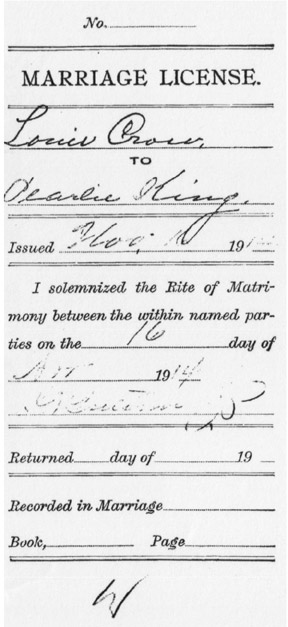 No.
MARRIAGE LICENSE.
Louie Crow,
TO
Pearlie King.
Issued Nov, 191
I solemnized the Rite of Matri-
mony between the within named par-
ties on the 16 day of
Nov 1914
Returned day of 19
Recorded in Marriage
Book, Page
W